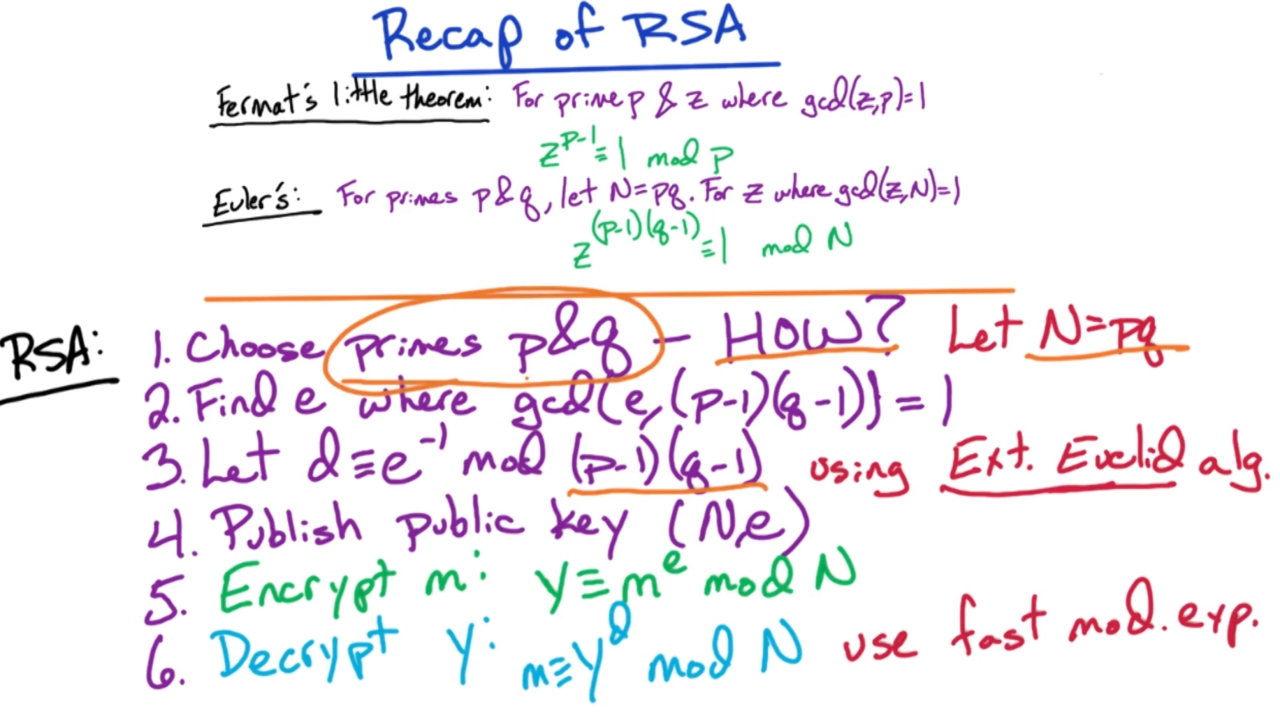 Recap of RSA
Fermat's little theorem: For prime p & z where gcd(z,p)=1
z^{p-1} ≡ 1 mod p
Euler's: For primes p & q, let N=pq. For z where gcd(z,N)=1
z^{(p-1)(q-1)} ≡ 1 mod N
RSA: 1. Choose primes p&q - HOW? Let N=pq
2. Find e where gcd(e,(p-1)(q-1)) = 1
3. Let d ≡ e^{-1} mod (p-1)(q-1) using Ext. Euclid alg.
4. Publish public key (N,e)
5. Encrypt m: y ≡ m^e mod N
6. Decrypt y: m ≡ y^d mod N use fast mod. exp.